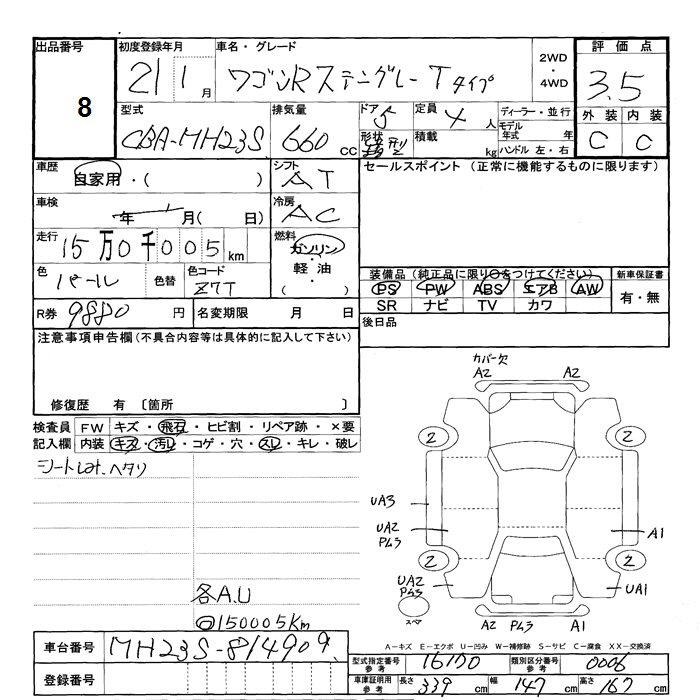 出品番号 初度登録年月 車名・グレード 2WD・4WD 評価点
8 21 1月 ワゴンRスティングレー Tタイプ 3.5
型式 排気量 ドア 定員 ディーラー・並行 外装 内装
CBA-MH23S 660 CC 5 4人 モデル年式 年 C C
形状 積載 kg ハンドル 左・右
車歴 シフト セールスポイント (正常に機能するものに限ります)
自家用・( ) AT
車検 冷房
年 月( 日) AC
走行 燃料
15万0千005km ガソリン・軽油 ( )
色 色替 色コード 装備品 (純正品に限り○をつけてください) 新車保証書
パール Z7T PS PW ABS エアB AW 有・無
SR ナビ TV カワ
R券 9880円 名変期限 月 日 後日品
注意事項申告欄(不具合内容等は具体的に記入して下さい)
修復歴 有 〔箇所 〕
カバー欠
A2 A2
検査員記入欄 FW キズ・飛石・ヒビ割・リペア跡・×要
内装 キズ・汚レ・コゲ・穴・スレ・キレ・破レ
2 2
シートヨレ、ヘタリ
UA3
UA2 A1
PM3
2 2
UA2 UA1
PM3
各A.U
スペア
◎150005Km
A2 PM3 A1
A-キズ E-エクボ U-凹み W-補修跡 S-サビ C-腐食 XX-交換済
車台番号 MH23S-814909
型式指定番号 参考 16170 類別区分番号 参考 0006
登録番号
車庫証明用 参考 長さ 339cm 幅 147cm 高さ 167cm